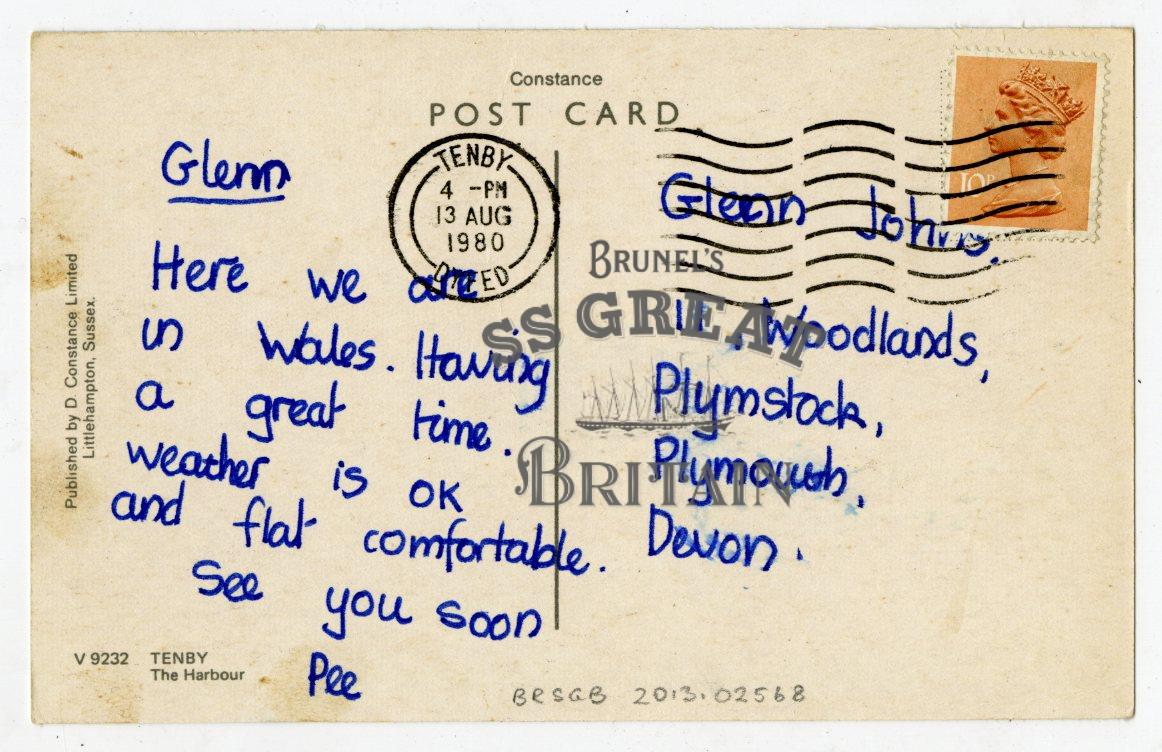 Constance
POST CARD
TENBY
4 -PM
13 AUG
1980
DYFED
10P
Glenn
Here we are
in Wales. Having
a great time.
weather is OK
and flat comfortable.
See you soon
Pee
Glenn Johns.
Woodlands,
Plymstock,
Plymouth,
Devon.
BRUNEL'S
SS GREAT
BRITAIN
Published by D. Constance Limited
Littlehampton, Sussex.
V 9232 TENBY
The Harbour
BRSGB 2013.02568